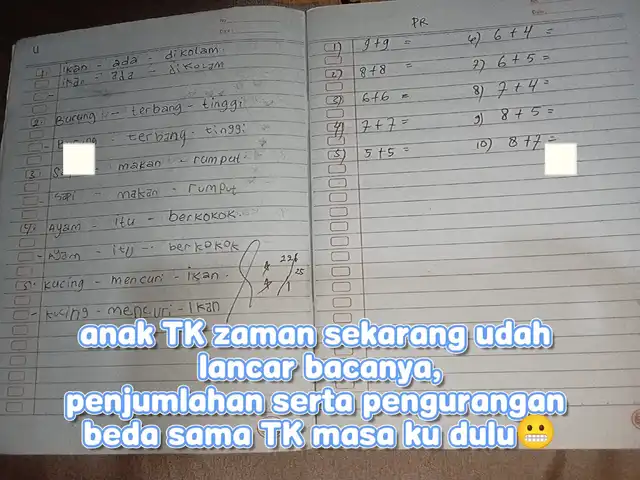 1. Ikan - ada - dikolam.
Ikan - ada - dikolam
2. Burung - terbang - tinggi
- terbang - tinggi
3. - makan - rumput
- Sapi - makan - rumput
4. Ayam - itu - berkokok.
- Ayam - itu - berkokok
5. kucing - mencuri - ikan.
- kucing - mencuri - ikan
226
25
1
PR
1) 9+9 =
2) 8+8 =
3) 6+6 =
4) 7+7 =
5) 5+5 =
6) 6+4 =
7) 6+5 =
8) 7+4 =
9) 8+5 =
10) 8+7 =
anak TK zaman sekarang udah
lancar bacanya,
penjumlahan serta pengurangan
beda sama TK masa ku dulu😬